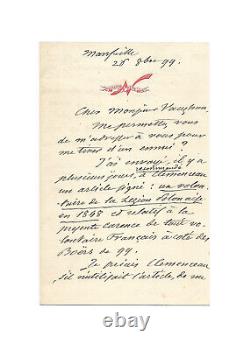 Marseille
26 8bre 99.
Cher Monsieur Vaughan
Me permettez vous
de m'adresser à vous pour
me tirer d'un ennui ?
J'ai envoyé, il y a
recommandé
plusieurs jours, à Clemenceau
un article signé : un volon-
taire de la Légion Polonaise
en 1848 et relatif à la
présente carence de tout vo-
lontaire Français à côté des
Boërs de 99.
Je priais Clemenceau
s'il utilisait l'article, de me
ebay